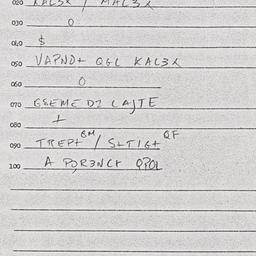 020 KAL3X / MAL3X
030 O
040 $
050 VAPND+ QGL KAL3X
060 O
070 GEEME DI LAJTE
080 +
090 TREP+ GM / S+TIG+ QF
100 A POR3NCK QPOL